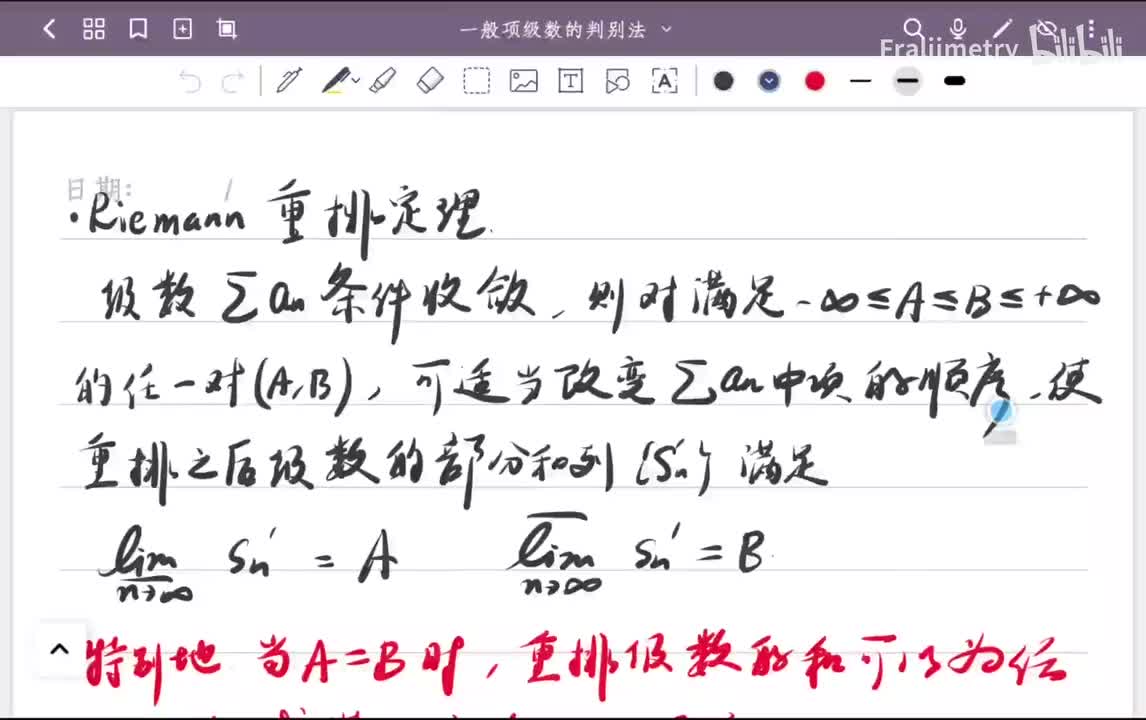 一般项级数的判别法
Fraliimetry bilibili
日期: /
·Riemann 重排定理.
级数 ∑an 条件收敛, 则对满足 -∞≤A≤B≤+∞
的任一对(A,B), 可适当改变 ∑an中项的顺序, 使
重排之后级数的部分和列 {Sn'} 满足
lim n→∞ Sn' = A lim n→∞ Sn' = B.
特别地 当A=B时, 重排级数的和可以为任